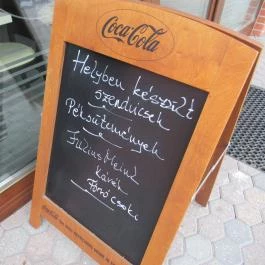 Coca-Cola
Helyben készült
szendvicsek
Péksütemények
Julius Meinl
kávék
Forró Csoki
Coca-Cola